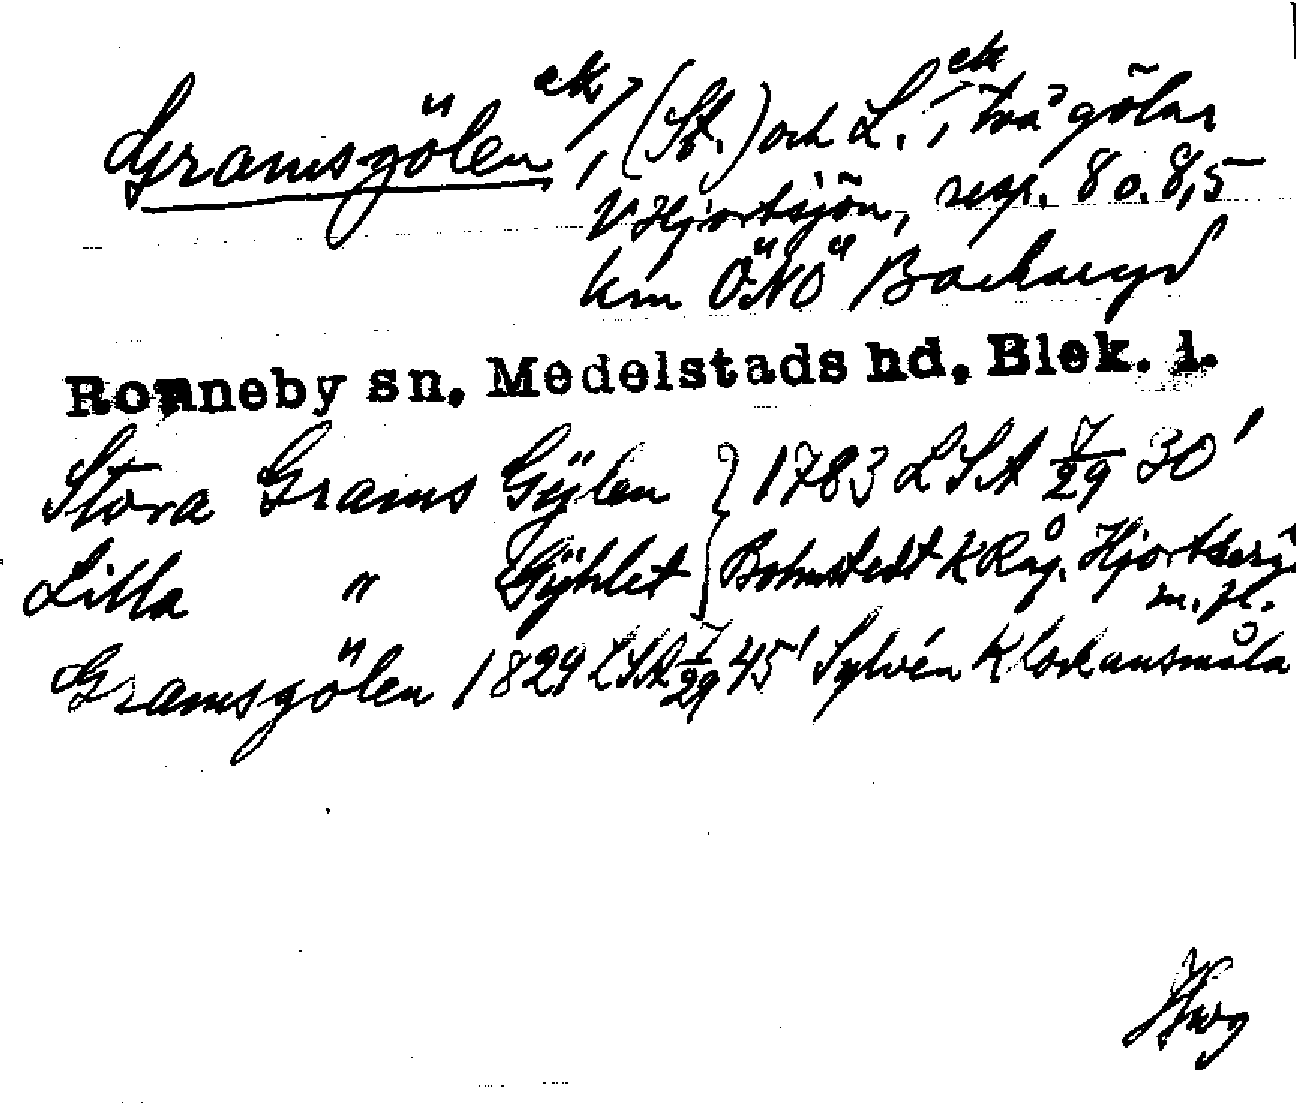 Gramsgölen ek/, (St.) och L. ek, två gölar
V Hjortsjön, resp. 8 o. 8,5
km ÖNÖ Backaryd
Ronneby sn, Medelstads hd, Blek. l.
Stora Grams Gÿlen } 1783 LSA 7/29 30'
Lilla " Gÿhlet } Bohmstedt KRåg. Hjortseryd
m. fl.
Gramsgölen 1829 LSA 7/29 45' Sylvén Klockansmåla